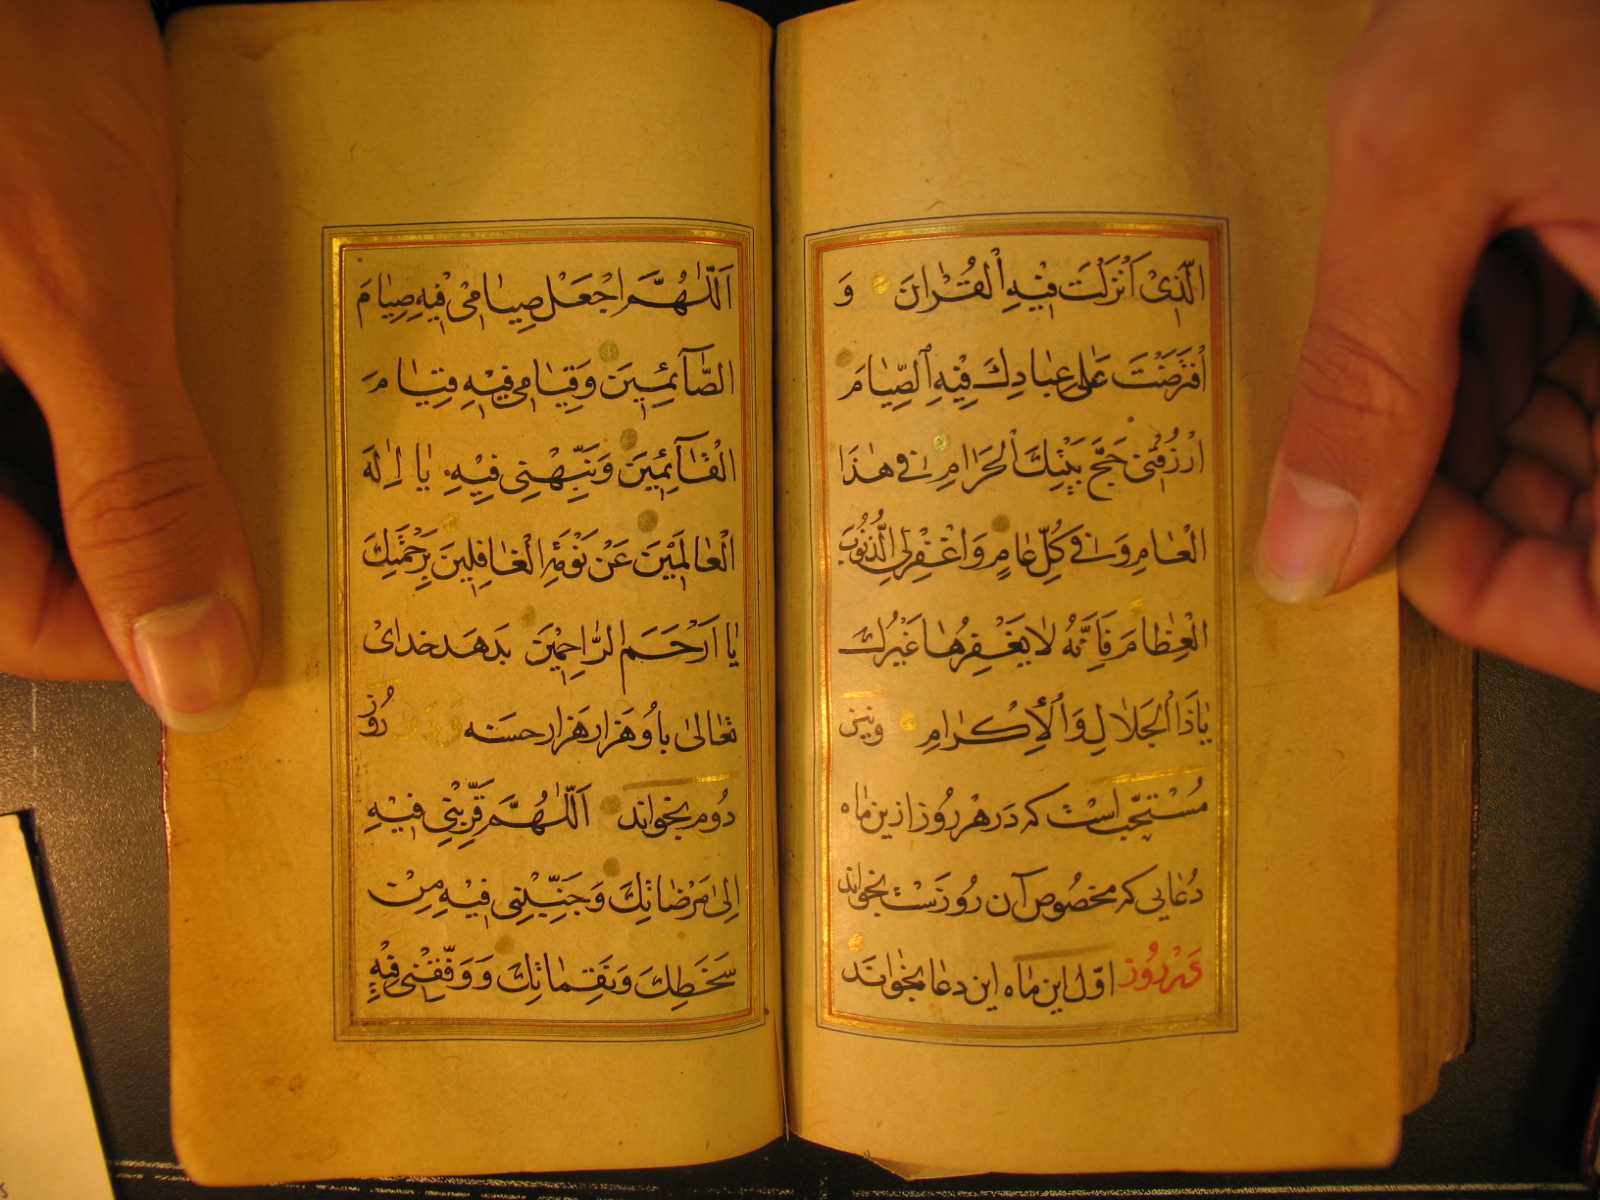 الَّذِیْ اَنْزَلْتَ فِیْهِ الْقُرْانَ وَ
افْتَرَضْتَ عَلٰی عِبَادِكَ فِیْهِ الصِّیَامَ
ارْزُقْنِیْ حَجَّ بَیْتِكَ الْحَرَامِ فِی هٰذَا
الْعَامِ وَ فِی كُلِّ عَامٍ وَ اغْفِرْ لِیَ الذُّنُوبَ
الْعِظَامَ فَاِنَّهُ لَا یَغْفِرُهَا غَیْرُكَ
یَا ذَا الْجَلَالِ وَ الْاِكْرَامِ و نیز
مُسْتَحَبّ است كه دَر هَر رُوز ازین ماه
دُعایی كه مخصُوص آن رُوزَست بخواند
اوّل این ماه این دعا بخوانَد
اَللّٰهُمَّ اجْعَلْ صِیَامِیْ فِیْهِ صِیَامَ
الصَّآئِمِینَ وَ قِیَامِیْ فِیْهِ قِیَامَ
الْقَآئِمِینَ وَ نَبِّهْنِی فِیْهِ یَا اِلٰهَ
الْعَالَمِیْنَ عَنْ نَوْمَةِ الْغَافِلِینَ بِرَحْمَتِكَ
یَا اَرْحَمَ الرَّاحِمِیْنَ بدَهَد خدایْ
تعَالیٰ باُو هَزار هَزار حسَنه رُوز
دُوم بخواند اَللّٰهُمَّ قَرِّبْنِی فِیْهِ
اِلیٰ مَرْضَاتِكَ وَ جَنِّبْنِی فِیْهِ مِنْ
سَخَطِكَ وَ نَقِمَاتِكَ وَ وَفِّقْنِی فِیْهِ